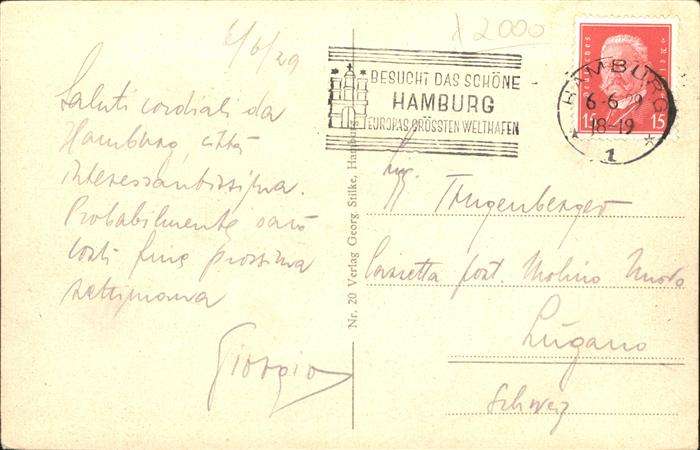 6/6/29
Saluti cordiali da
Hamburg, città
interessantissima.
Probabilmente sarò
costì fine prossima
settimana
Giorgio
Nr. 20 Verlag Georg Stilke, Hamburg
2000
BESUCHT DAS SCHÖNE
HAMBURG
EUROPAS GRÖSSTEN WELTHAFEN
HAMBURG
6-6 29
18-19
1
Deutsches Reich
15 15
Trugenberger
Cassetta post. Molino Nuovo
Lugano
Schweiz